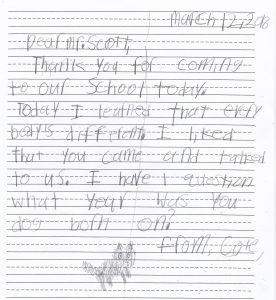 March 12, 208
Dear Mr. Scott,
Thank you for coming
to our School today.
Today I learned that every
body is different. I liked
that you came and talked
to us. I have 1 question
what year was you
dog born on?
from: Cole,